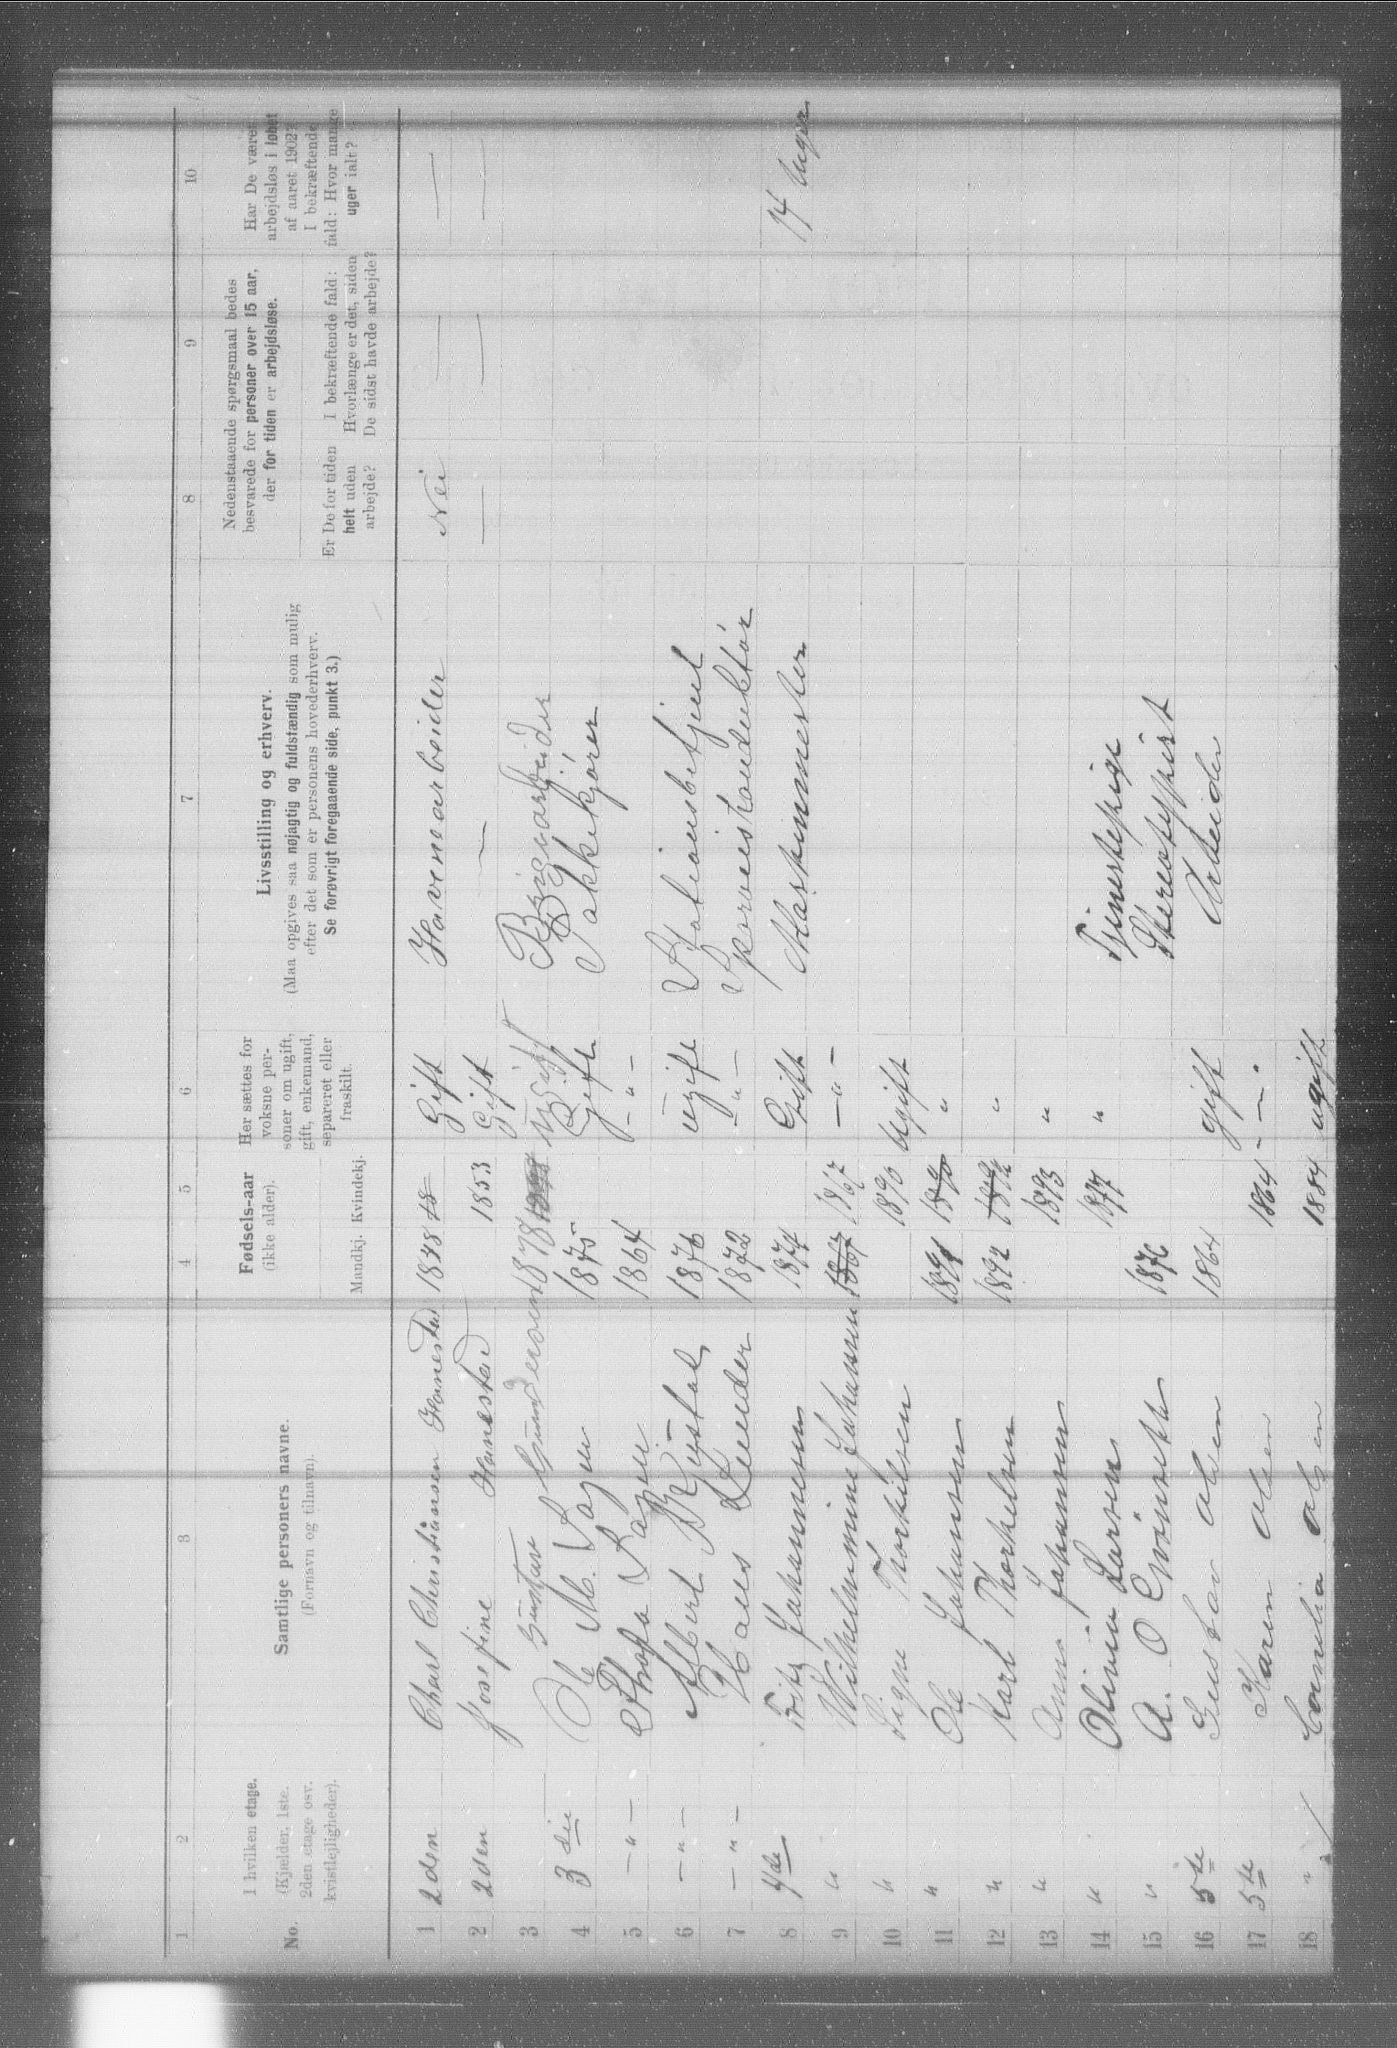 1 2 3 4 5 6 7 8 9 10
No.
I hvilken etage.
(Kjælder, 1ste.
2den etage osv.
kvistlejligheder).
Samtlige personers navne.
(Fornavn og tilnavn).
Fødsels-aar
(ikke alder).
Mandkj. Kvindekj.
Her sættes for
voksne per-
soner om ugift,
gift, enkemand,
separeret eller
fraskilt.
Livsstilling og erhverv.
(Maa opgives saa nøjagtig og fuldstændig som mulig
efter det som er personens hovederhverv.
Se forøvrigt foregaaende side, punkt 3.)
Nedenstaaende spørgsmaal bedes
besvarede for personer over 15 aar,
der for tiden er arbejdsløse.
Er De for tiden
helt uden
arbejde?
I bekræftende fald:
Hvorlænge er det, siden
De sidst havde arbejde?
Har De været
arbejdsløs i løbet
af aaret 1902?
I bekræftende
fald: Hvor mange
uger ialt?
1 2den Charl Christiansen Hanestad 1848 Gift Havnearbeider Nei — —
2 2den Josefine Hanestad 1853 Gift — — — —
3 Gustav Gundersen 1878 Ugift Brigvarbeider
4 3die Ole M. Sagen 1875 Gift Pakkekjører
5 —"— 1864 —"—
6 —"— Albert 1876 ugift Stationsbetjent
7 —"— Hans Lunder 1872 —"— Sporveiskonduktør
8 4de Fritz Johannesen 1874 Gift Maskinmester 14 Uger
9 " Wilhelmine Johannsen 1867 1867 —"—
10 " Signe Thorkilsen 1890 Ugift
11 " Ole Johansen 1891 1890 "
12 " Karl Thorkelsen 1892 1892 "
13 " Anna Johansen 1893 "
14 " Olivia Larsen 1877 " Tjenestepige
15 " A. O 1876 Stereotypist
16 5te Gustav Olsen 1864 gift Arbeider
17 5te Karen Olsen 1864 —"—
18 " Cornelia Olsen 1884 ugift